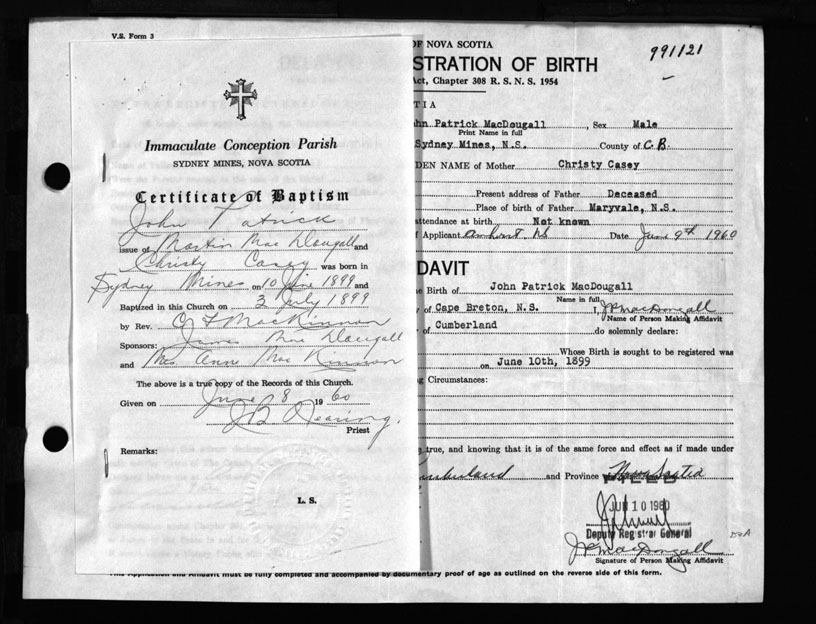 V.S. Form 3
Immaculate Conception Parish
SYDNEY MINES, NOVA SCOTIA
Certificate of Baptism
John Patrick
issue of Martin MacDougall and
Christy Casey was born in
Sydney Mines on 10 June 1899 and
Baptized in this Church on 3 July 1899
by Rev. MacKinnon
Sponsors: James MacDougall
and Mrs Anne MacKinnon
The above is a true copy of the Records of this Church.
Given on June 8 1960
Priest
Remarks:
L. S.
OF NOVA SCOTIA
991121
STRATION OF BIRTH
Act, Chapter 308 R. S. N. S. 1954
TIA
hn Patrick MacDougall, Sex Male
Print Name in full
Sydney Mines, N.S. County of C.B.
DEN NAME of Mother Christy Casey
Present address of Father Deceased
Place of birth of Father Maryvale, N.S.
attendance at birth Not known
f Applicant Amherst NS Date June 9th 1960
DAVIT
e Birth of John Patrick MacDougall
Name in full
y of Cape Breton, N.S. I, J P MacDougall
Name of Person Making Affidavit
of Cumberland do solemnly declare:
Whose Birth is sought to be registered was
on June 10th, 1899
g Circumstances:
true, and knowing that it is of the same force and effect as if made under
umberland and Province Nova Scotia
FILED
JUN 10 1960
Deputy Registrar General
J P MacDougall
Signature of Person Making Affidavit
This Application and Affidavit must be fully completed and accompanied by documentary proof of age as outlined on the reverse side of this form.